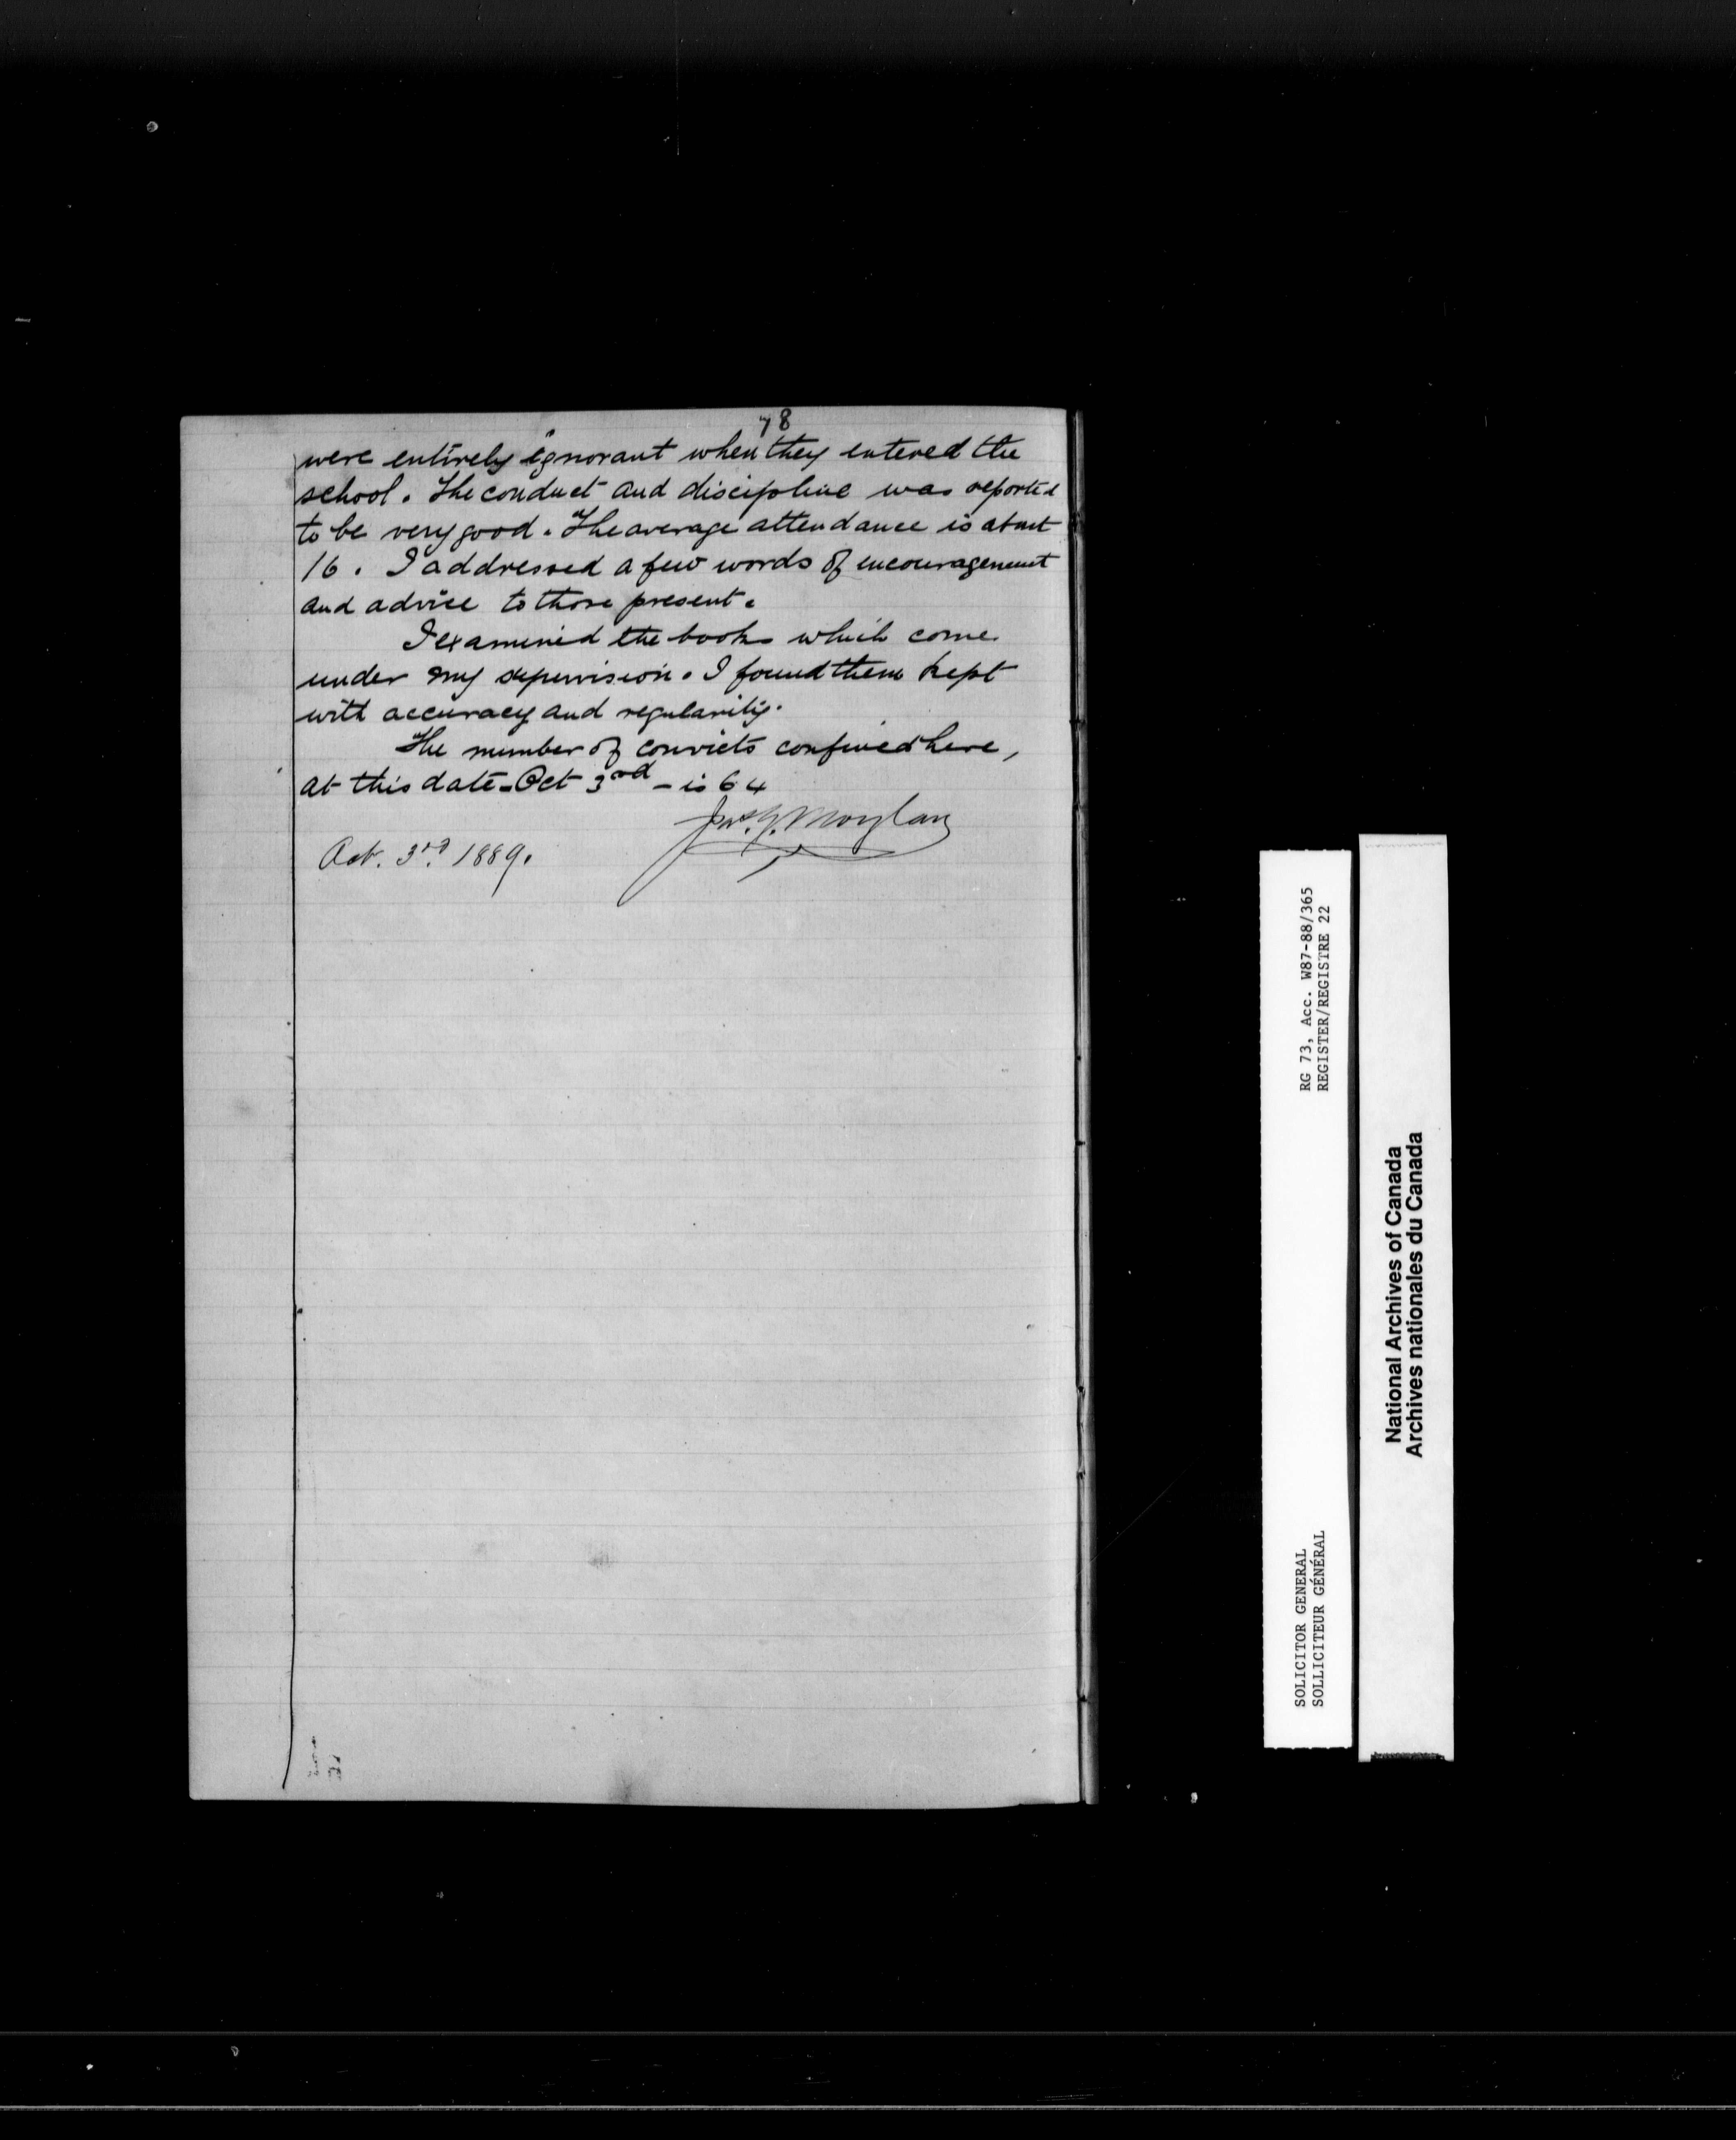 78
were entirely ignorant when they entered the
school. The conduct and discipline was reported
to be very good. The average attendance is about
16. I addressed a few words of encouragement
and advice to those present.
I examined the books which come
under my supervision. I found them kept
with accuracy and regularity.
The number of convicts confined here,
at this date - Oct 3rd - is 64
Jas. G. Moylan
Oct. 3rd. 1889.
RG 73, Acc. W87-88/365
REGISTER/REGISTRE 22
SOLICITOR GENERAL
SOLLICITEUR GÉNÉRAL
National Archives of Canada
Archives nationales du Canada